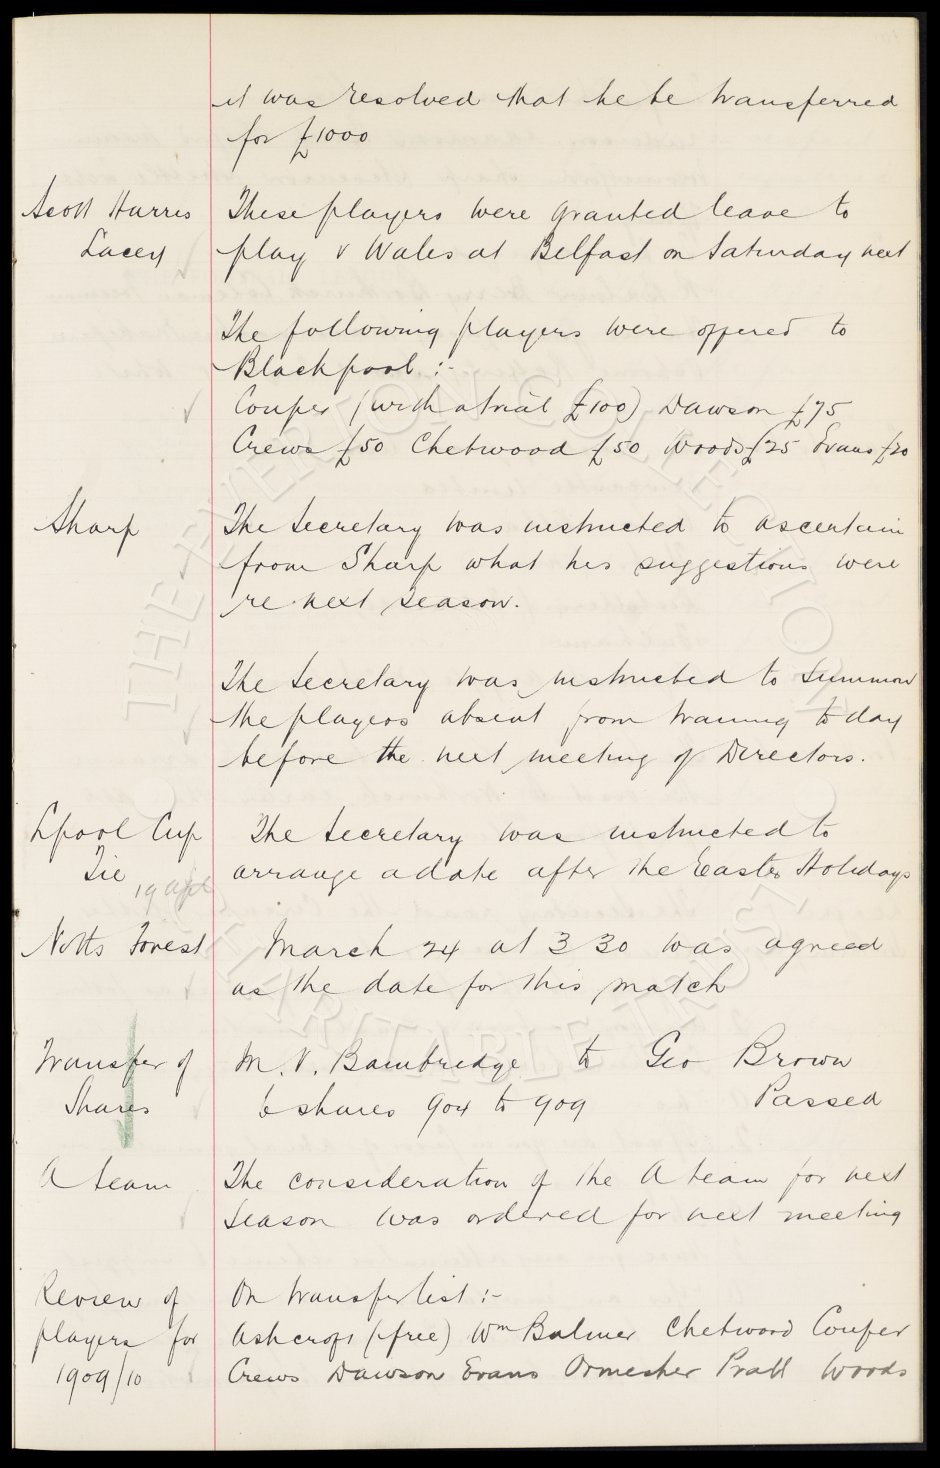 it was resolved that he be transferred
for £1000
Scott Harris
Lacey
These players were granted leave to
play v Wales at Belfast on Saturday next
The following players were offered to
Blackpool :-
Couper (with a trial £100) Dawson £75
Crews £50 Chetwood £50 Woods £25 Evans £20
Sharp
The Secretary was instructed to ascertain
from Sharp what his suggestions were
re next season.
The Secretary was instructed to summon
the players absent from training to day
before the next meeting of Directors.
Lpool Cup
Tie
19 apl
The Secretary was instructed to
arrange a date after the Easter Holidays
Notts Forest
March 24 at 3 30 was agreed
as the date for this match
Transfer of
Shares
M. V. Bambredge to Geo Brown
6 shares 904 to 909 Passed
A team
The consideration of the A team for next
Season was ordered for next meeting
Review of
players for
1909/10
On transfer list :-
Ashcroft (free) Wm Balmer Chetwood Couper
Crews Dawson Evans Ormesher Pratt Woods
THE EVERTON COLLECTION